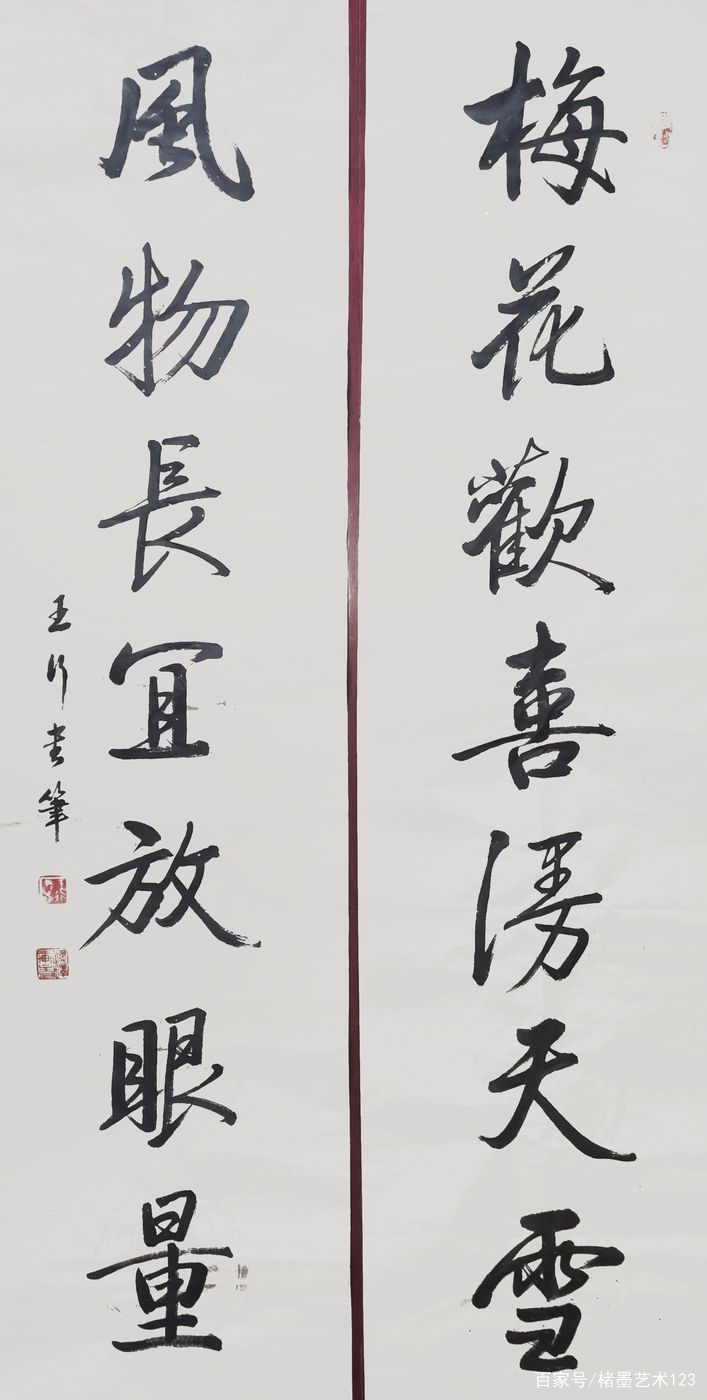 梅花歡喜漫天雪
風物長宜放眼量
王行書筆
百家号/楮墨艺术123